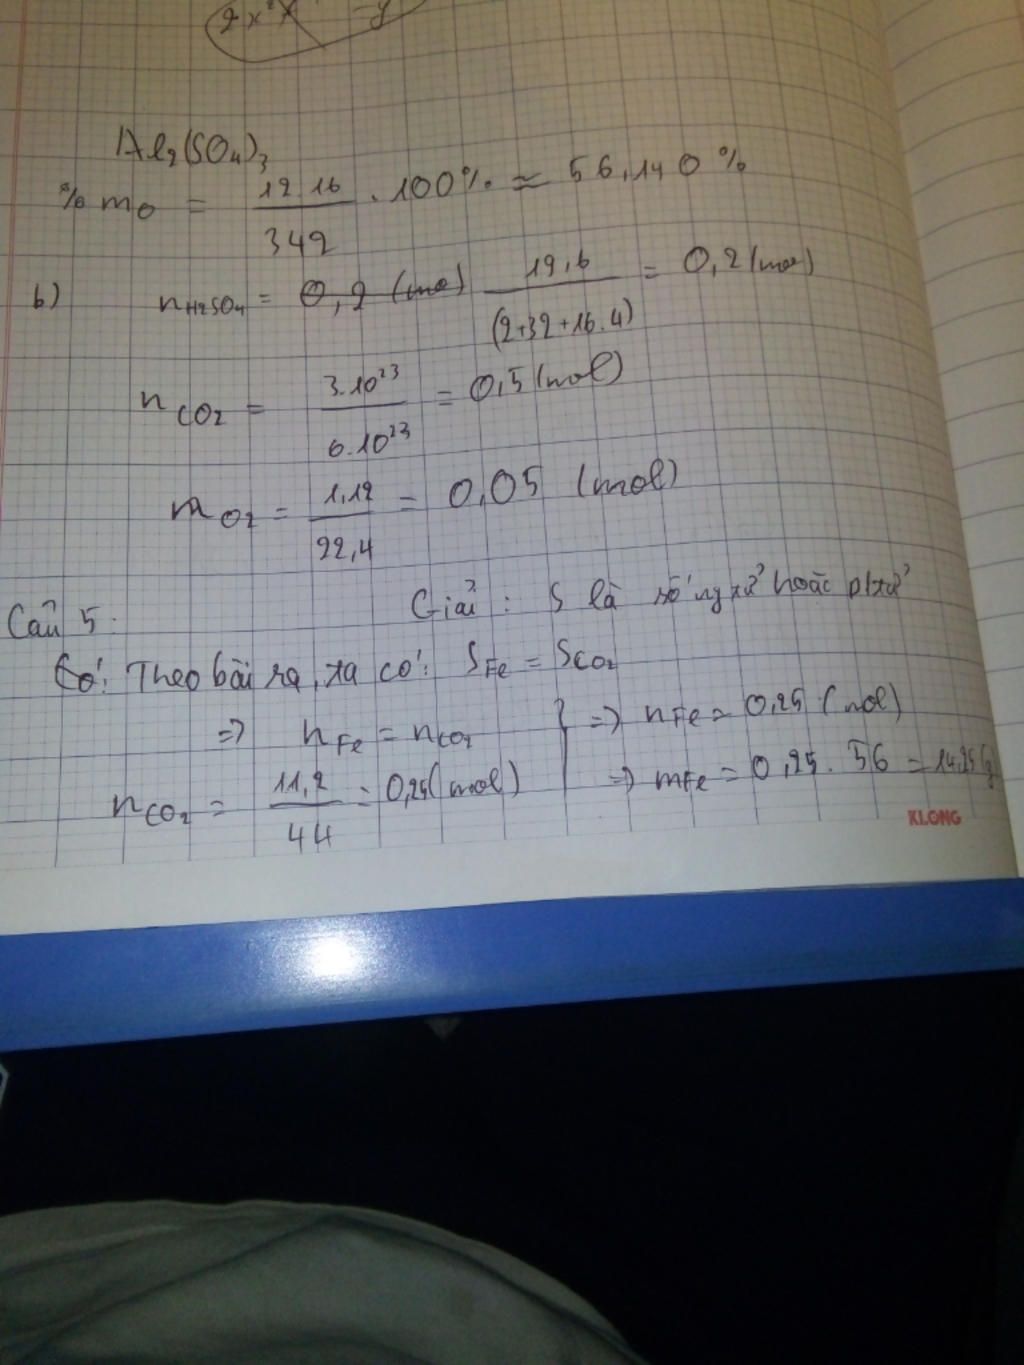 2x²x -y
Al₂(SO₄)₃
% mO = 12.16 / 342 . 100% ≈ 56,140 %
b) nH₂SO₄ = 0,2 (mol) 19,6 / (2+32+16.4) = 0,2 (mol)
nCO₂ = 3.10²³ / 6.10²³ = 0,5 (mol)
mO₂ = 1,12 / 22,4 = 0,05 (mol)
Câu 5: Giải: S là số ng tử hoặc ptử
Có: Theo bài ra, ta có: SFe = SCO₂
=> nFe = nCO₂ } => nFe = 0,25 (mol)
nCO₂ = 11,2 / 44 = 0,25 (mol) => mFe = 0,25. 56 = 14,25 (g)
KLONG